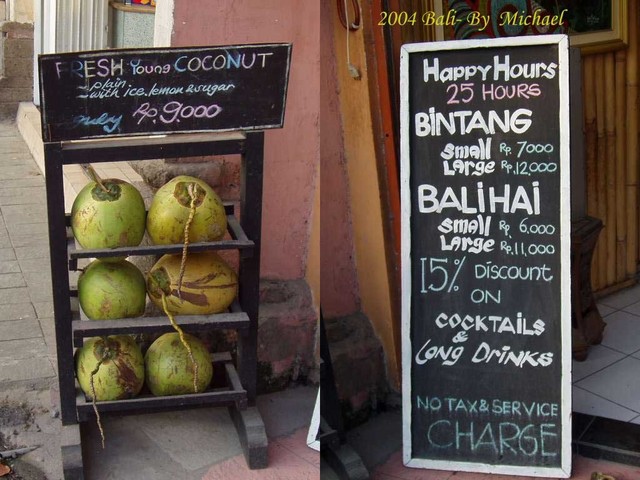 FRESH Young COCONUT
~ plain
~ with ice, lemon & sugar
only Rp. 9.000
2004 Bali- By Michael
Happy Hours
25 HOURS
BINTANG
Small Rp. 7000
Large Rp. 12,000
BALI HAI
Small Rp. 6,000
Large Rp. 11,000
15% Discount
ON
COCKTAILS
&
Long Drinks
NO TAX & SERVICE
CHARGE